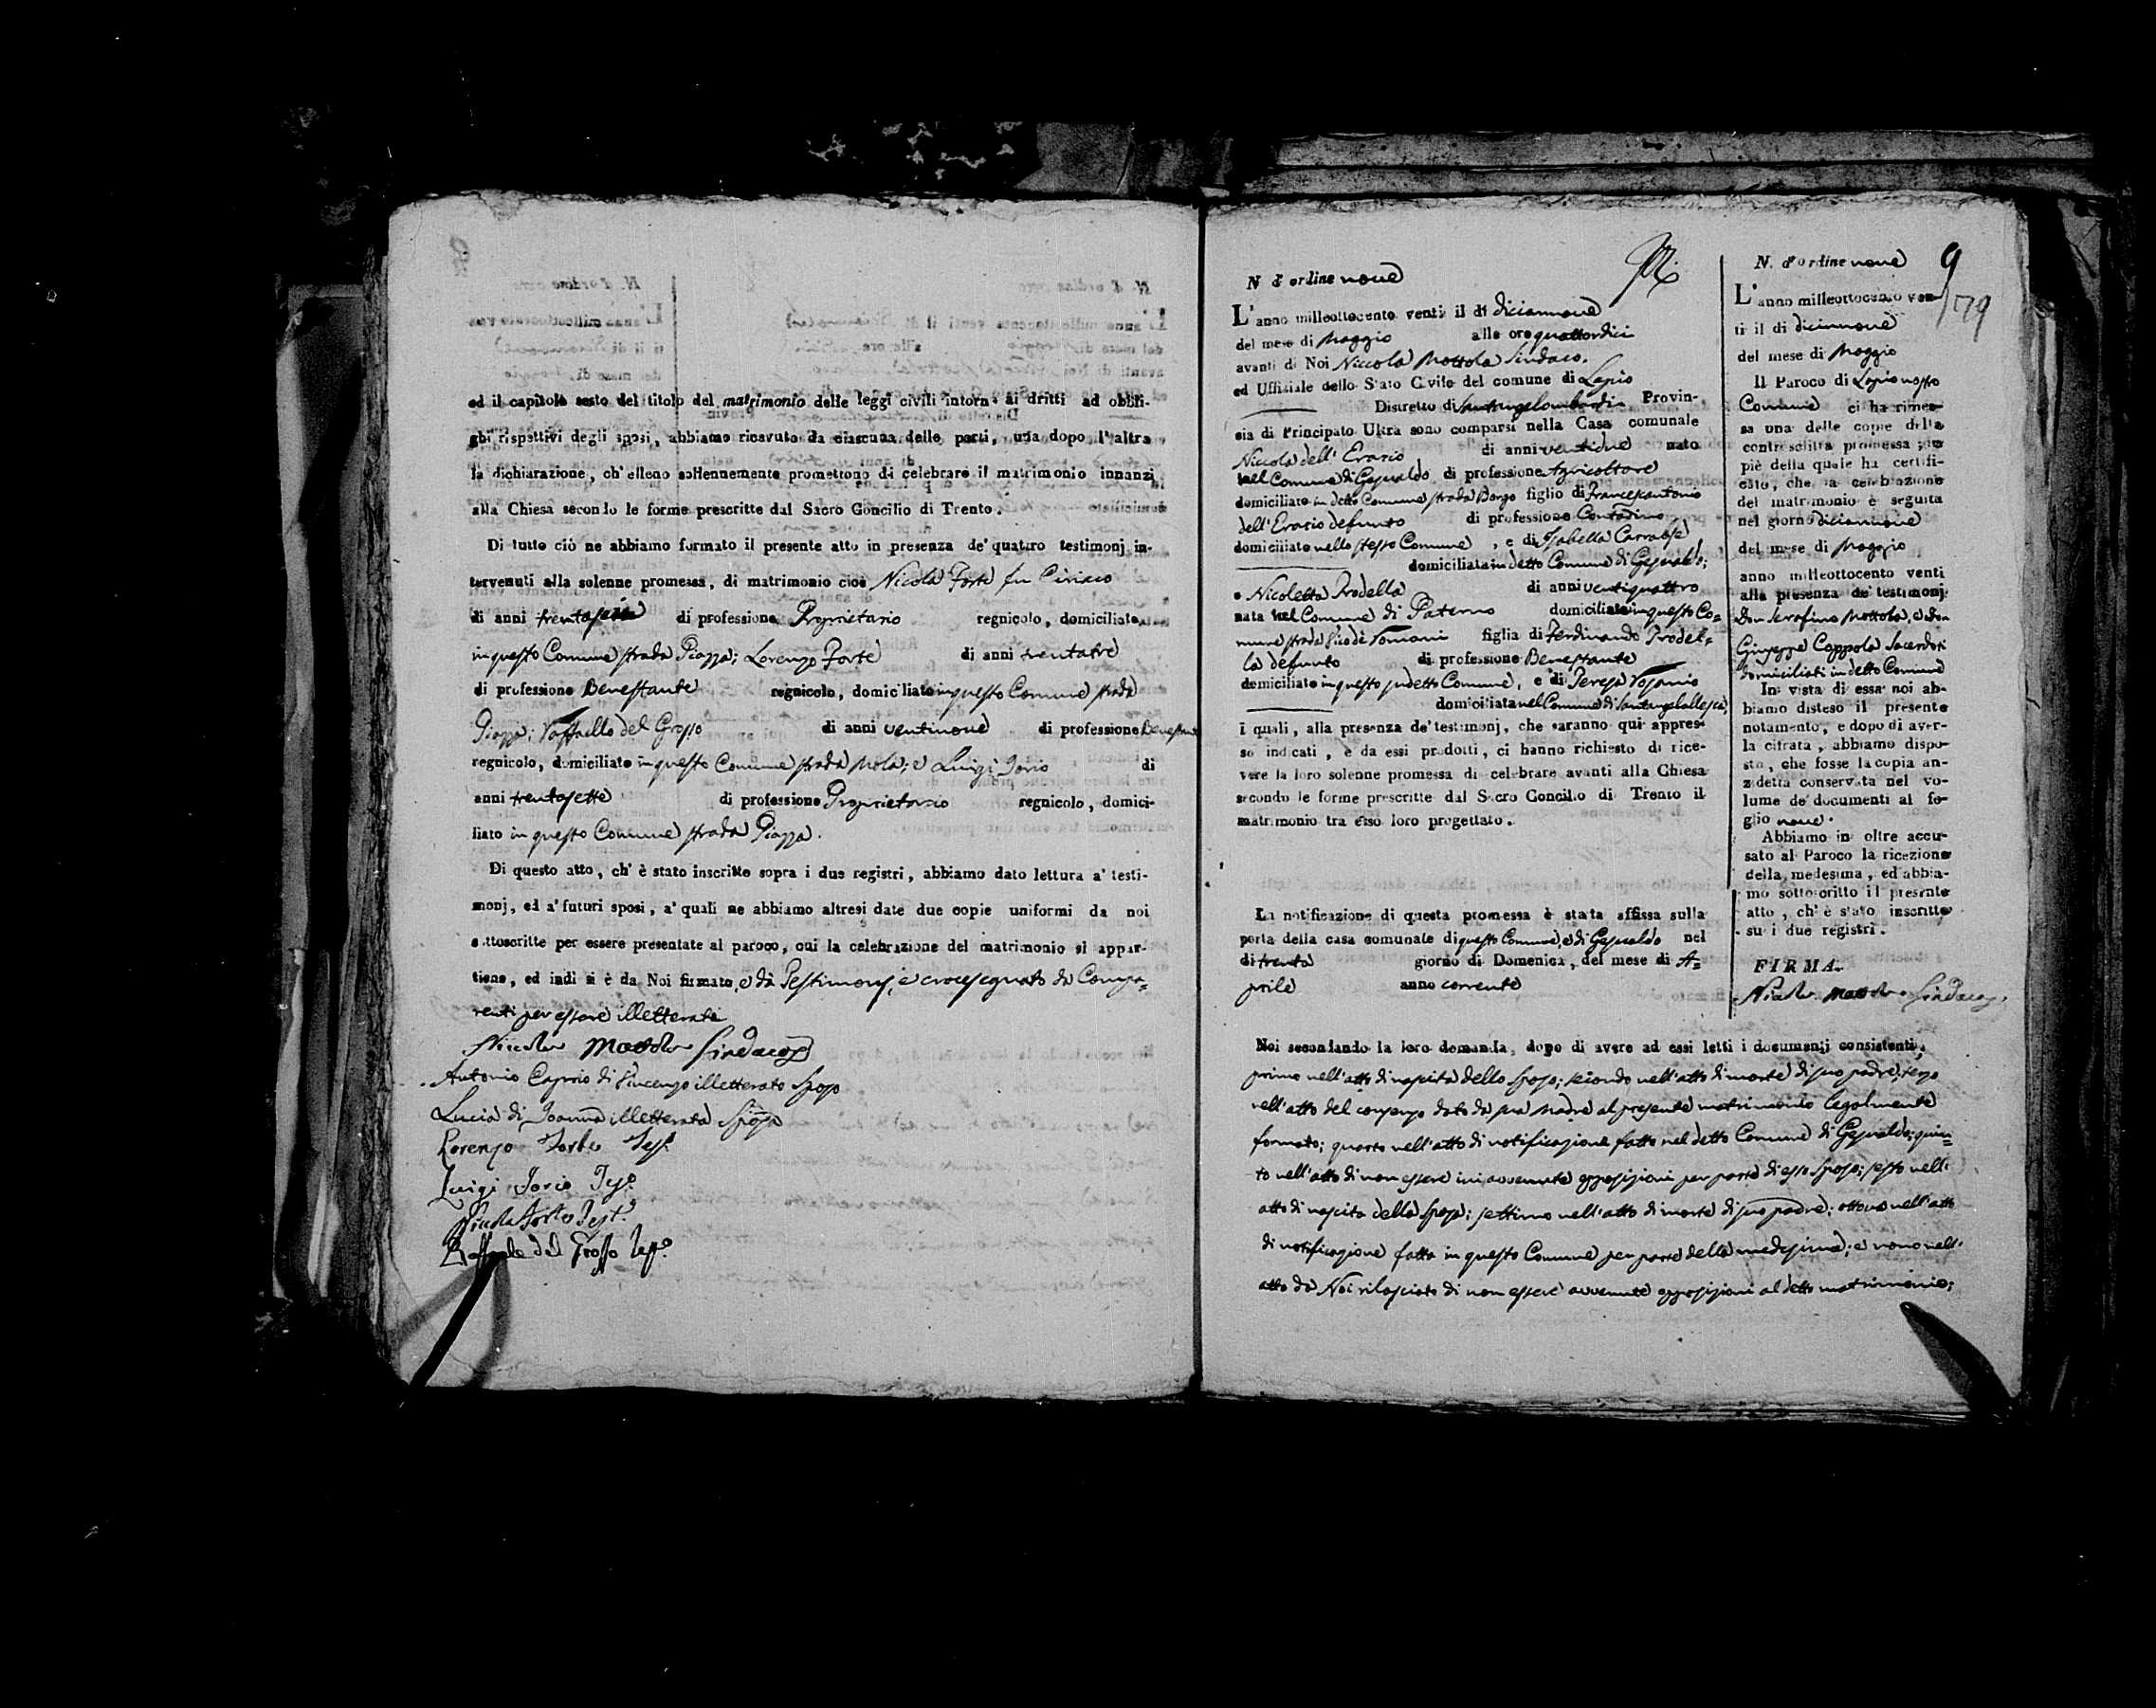 ed il capitolo sesto del titolo del matrimonio delle leggi civili intorno ai dritti ed obbli-
ghi rispettivi degli sposi, abbiamo ricevuto da ciascuna delle parti, una dopo l'altra
la dichiarazione, ch'elleno sollennemente promettono di celebrare il matrimonio innanzi
alla Chiesa secondo le forme prescritte dal Sacro Concilio di Trento.
Di tutto ciò ne abbiamo formato il presente atto in presenza de' quattro testimonj in-
tervenuti alla solenne promessa, di matrimonio cioè Nicola Forte fu Ciriaco
di anni di professione Proprietario regnicolo, domiciliato
in questo Comune strada Piazza; Lorenzo Forte di anni trentatre
di professione Benestante regnicolo, domiciliato in questo Comune strada
Piazza; Raffaello del Grosso di anni ventinove di professione Benestante
regnicolo, domiciliato in questo Comune strada Mola; e Luigi Iorio di
anni trentasette di professione Proprietario regnicolo, domici-
liato in questo Comune strada Piazza.
Di questo atto, ch' è stato inscritto sopra i due registri, abbiamo dato lettura a' testi-
monj, ed a' futuri sposi, a' quali ne abbiamo altresì date due copie uniformi da noi
sottoscritte per essere presentate al paroco, cui la celebrazione del matrimonio si appar-
tiene, ed indi si è da Noi firmato, e da Testimonj, e crocesegnato da Compa=
renti per essere illetterati
Nicola Mottola Sindaco
Antonio Caprio di Vincenzo illetterato Sposo
Lucia di Joanna illetterata Sposa
Lorenzo Forte Test.
Luigi Iorio Tes.o
Nicola Forte Test.o
Raffaele del Grosso Tes.o
N d'ordine nove
L'anno milleottocento venti il dì diciannove
del mese di Maggio alle ore quattordici
avanti di Noi Niccola Mottola Sindaco.
ed Uffiziale dello Stato Civile del comune di Lapio
Distretto di Santangelombardi Provin-
cia di Principato Ultra sono comparsi nella Casa comunale
Niccola dell' Erario di anni ventidue nato
nel Comune di Gesualdo di professione Agricoltore
domiciliato in detto Comune strada Borgo figlio di Francescantonio
dell'Erario defunto di professione Contadino
domiciliato nello stesso Comune, e di Isabella Carrabse
domiciliata in detto Comune di Gesualdo;
e Nicoletta Prodella di anni ventiquattro
nata nel Comune di Paterno domiciliata in questo Co=
mune strada figlia di Ferdinando Prodel=
la defunto di professione Benestante
domiciliato in questo sudetto Comune, e di Teresa
domiciliata nel Comune di
i quali, alla presenza de' testimonj, che saranno qui appres-
so indicati, e da essi prodotti, ci hanno richiesto di rice-
vere la loro solenne promessa di celebrare avanti alla Chiesa
secondo le forme prescritte dal Sacro Concilio di Trento il
matrimonio tra esso loro progettato.
La notificazione di questa promessa è stata affissa sulla
porta della casa comunale di questo Comune, e di Gesualdo nel
di trenta giorno di Domenica, del mese di A=
prile anno corrente
Noi secondando la loro domanda, dopo di avere ad essi letti i documenti consistenti,
primo nell'atto di nascita dello sposo; secondo nell'atto di morte di suo padre; terzo
nell'atto del consenso dato da sua Madre al presente matrimonio legalmente
formato; quarto nell'atto di notificazione fatto nel detto Comune di Gesualdo; quin=
to nell'atto di non essere ivi avvenute opposizioni per parte di esso sposo; sesto nell'
atto di nascita della sposa; settimo nell'atto di morte di suo padre; ottavo nell'atto
di notificazione fatta in questo Comune per parte della medesima; e nono nell'
atto da Noi rilasciato di non essere avvenute opposizioni al detto matrimonio;
N. d'ordine nove 9
179
L'anno milleottocento ven-
ti il dì diciannove
del mese di Maggio
Il Paroco di Lapio nostro
Comune ci ha rimes-
sa una delle copie della
controscritta promessa; in
piè della quale ha certifi-
cato, che la celebrazione
del matrimonio è seguita
nel giorno diciannove
del mese di Maggio
anno milleottocento venti
alla presenza de' testimonj
Don Serafino Mottola, e Don
Giuseppe Coppola Sacerdoti
domiciliati in detto Comune
In vista di essa noi ab-
biamo disteso il presente
notamento, e dopo di aver-
la citrata, abbiamo dispo-
sto, che fosse la copia an-
zidetta conservata nel vo-
lume de' documenti al fo-
glio nove.
Abbiamo in oltre accu-
sato al Paroco la ricezione
della medesima, ed abbia-
mo sottoscritto il presente
atto, ch' è stato inscritto
su i due registri.
FIRMA.
Nicola Mottola Sindaco